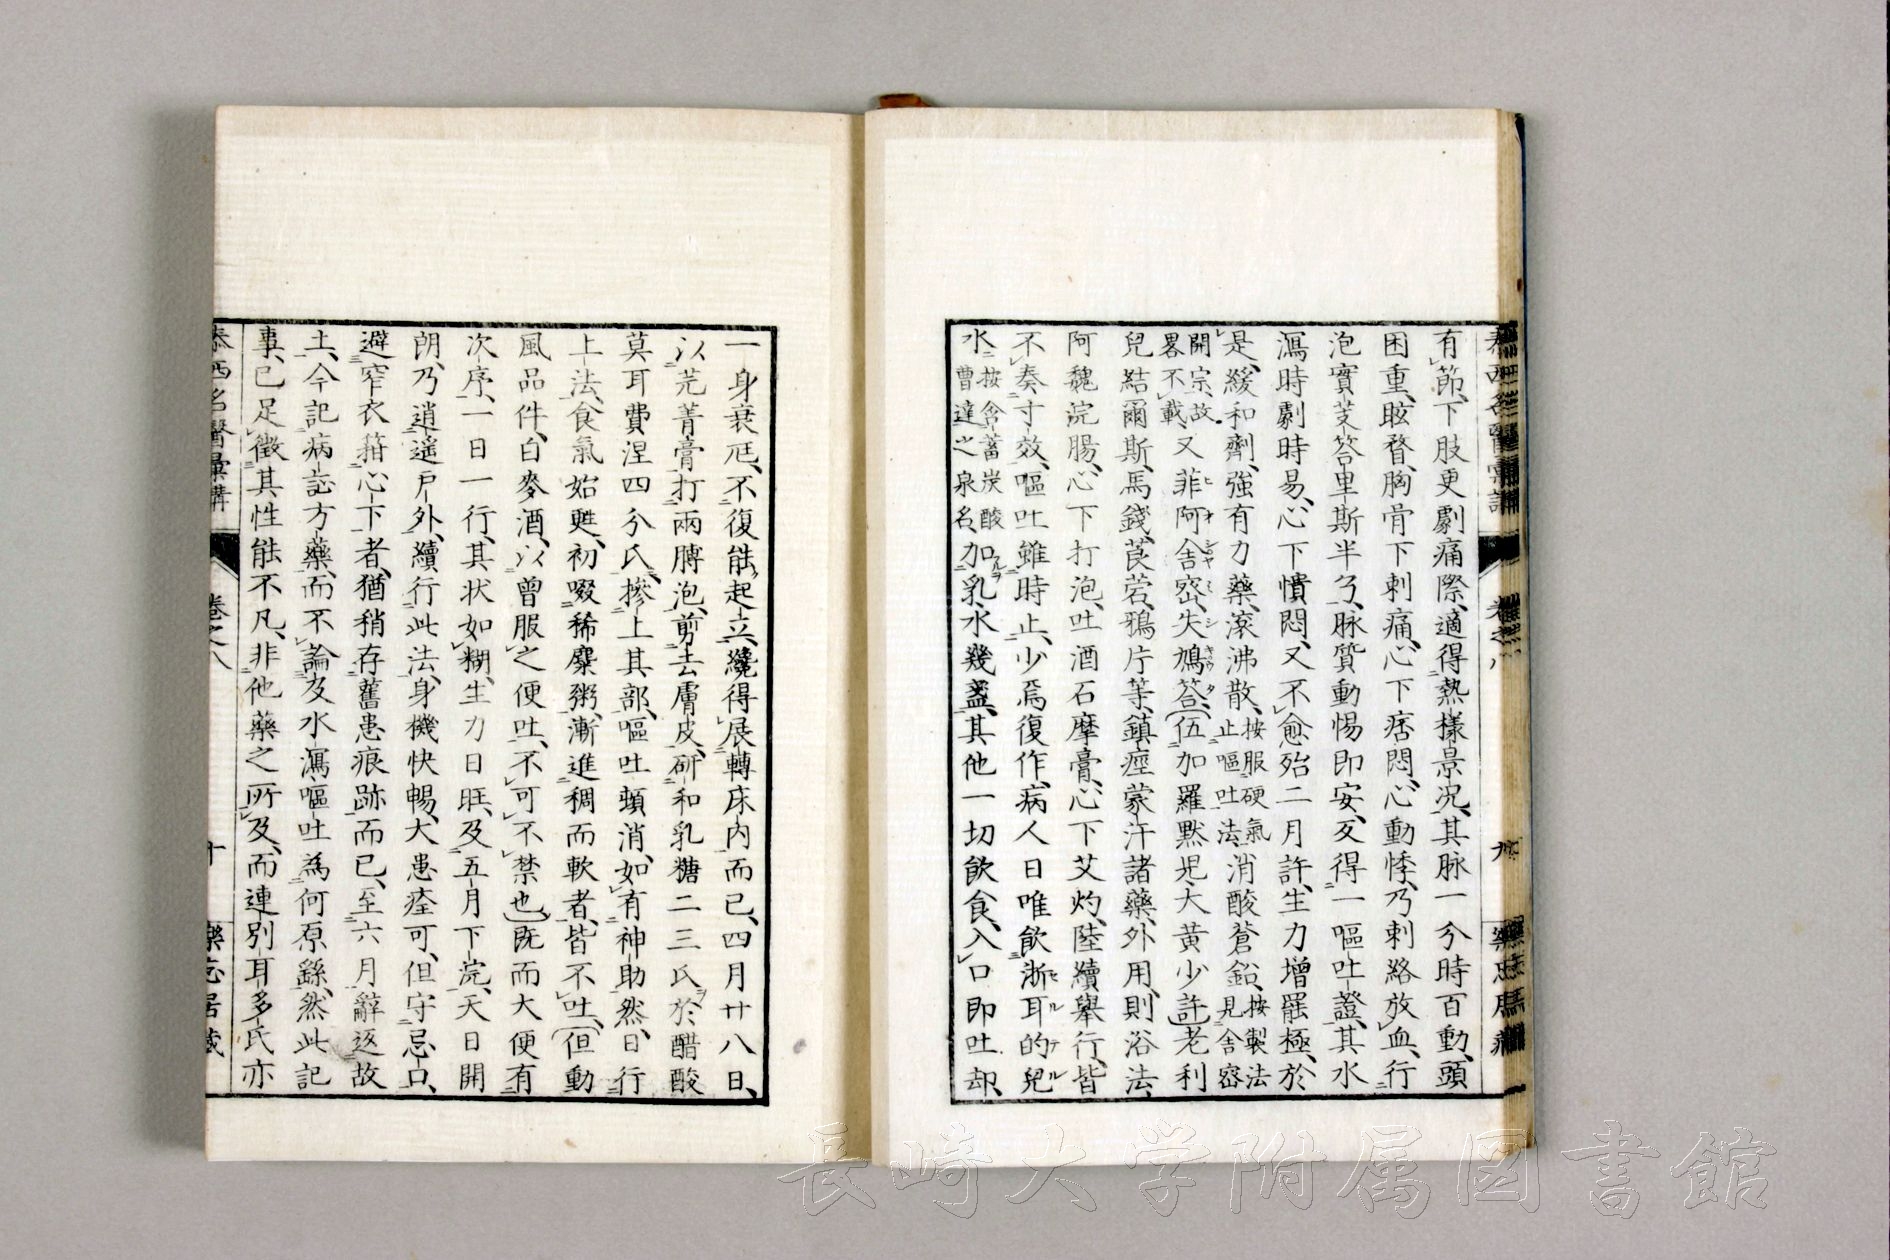 有節、下肢更劇痛際、適得熱樣景况、其脉一分時百動、頭
困重、眩瞀、胸骨下刺痛、心下痞悶、心動悸、乃刺絡放血、行
泡實芰答里斯半弓、脉質動惕即安、又得一嘔吐證、其水
瀉時劇時易、心下憒悶、又不愈殆二月許、生力增罷極、於
是、緩和劑、強有力藥、滾沸散、按服硬氣止嘔吐法、消酸蒼鉛、按製法見舍密
開宗、故畧不載、又菲阿舍密失鳩答、(伍加羅黙児大黄少許)老利
兒結爾斯、馬錢、莨菪、鴉片等、鎮痙蒙汗諸藥、外用、則浴法、
阿魏浣腸、心下打泡、吐酒石摩膏、心下艾灼、陸續舉行、皆
不奏寸效、嘔吐雖時止、少焉復作、病人日唯飲浙耳的兒
水按含蓄炭酸曹達之泉名、加乳水幾盞、其他一切飲食、入口即吐却、
泰西名醫彙講 卷之八 九
一身衰尫、不復能起立、纔得展轉床內而已、四月廿八日、
以芫菁膏打兩膊泡、剪去膚皮、研和乳糖二三氏於醋酸
莫耳費涅四分氏、摻上其部、嘔吐頓消、如有神助然、日行
上法、食氣始甦、初啜稀麋粥、漸進稠而軟者、皆不吐、(但動
風品件、白麥酒、以曾服之便吐、不可不禁也)既而大便有
次序、一日一行、其状如糊、生力日旺、及五月下浣、天日開
朗、乃逍遥戶外、續行此法、身機快暢、大患痊可、但守忌口、
避窄衣箝心下者、猶稍存舊患痕跡而已、至六月辭返故
土、今記病訟方藥、而不論及水瀉嘔吐為何原繇、然此記
事、已足徵其性能不凡、非他藥之所及、而連別耳多氏亦
泰西名醫彙講 卷之八 十 樂忘居藏
長崎大学附属図書館